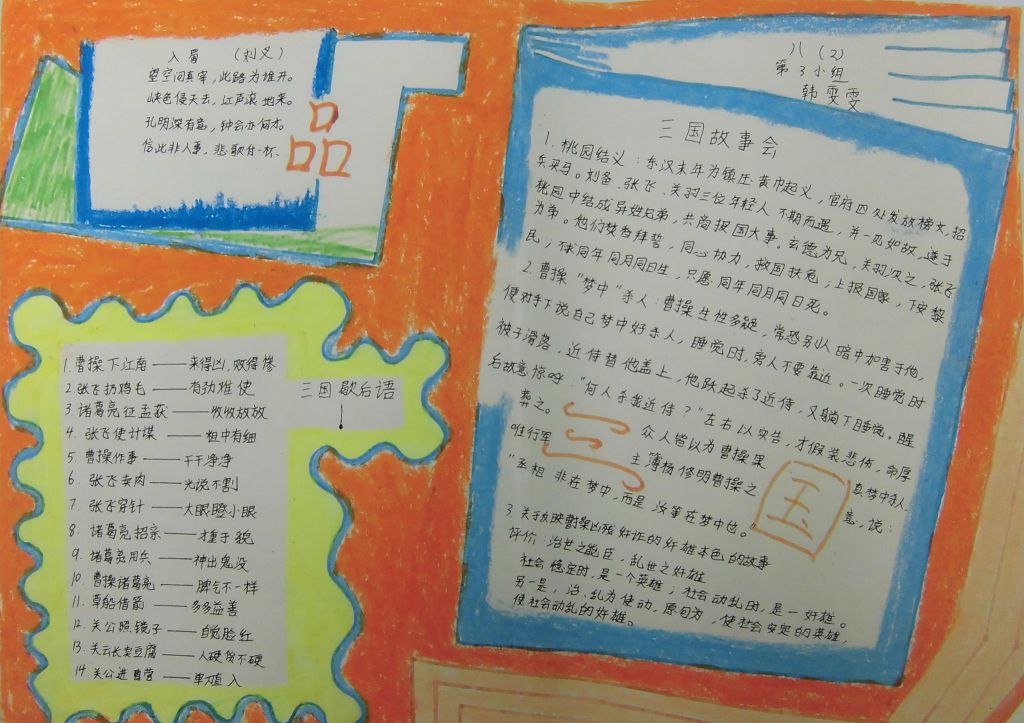 入蜀 (刘义)
望空问真宰，此路为谁开。
峡色侵天去，江声滚地来。
孔明深有意，钟会亦何才。
信此非人事，悲歌付一杯。
品
三国歇后语
1.曹操下江南——来得凶，败得惨
2.张飞扔鸡毛——有劲难使
3.诸葛亮征孟获——收收放放
4.张飞使计谋——粗中有细
5.曹操作事——干干净净
6.张飞卖肉——光说不割
7.张飞穿针——大眼瞪小眼
8.诸葛亮招亲——才重于貌
9.诸葛亮用兵——神出鬼没
10.曹操诸葛亮——脾气不一样
11.草船借箭——多多益善
12.关公照镜子——自觉脸红
13.关云长卖豆腐——人硬货不硬
14.关公进曹营——单刀直入
八 (2)
第3小组
韩雯雯
三国故事会
1.桃园结义：东汉末年为镇压黄巾起义，官府四处发放榜文，招
兵买马。刘备、张飞、关羽三位年轻人不期而遇，并一见如故，遂于
桃园中结成异姓兄弟，共商报国大事。玄德为兄，关羽次之，张飞
为弟。他们焚香拜誓，同心协力，救国扶危；上报国家，下安黎
民；不求同年同月同日生，只愿同年同月同日死。
2.曹操“梦中”杀人：曹操生性多疑，常恐别人暗中加害于他，
便对手下说自己梦中好杀人，睡觉时，旁人不要靠近。一次睡觉时
被子滑落，近侍替他盖上，他跃起杀了近侍，又躺下睡觉。醒
后故意惊呼：“何人杀我近侍？”左右以实告，才假装悲伤，命厚
葬之。 众人皆以为曹操果真梦中杀人
唯行军主簿杨修明曹操之意，说：
“丞相非在梦中，而是汝等在梦中也。
三国
3.关于反映曹操凶残奸诈的奸雄本色的故事
评价：治世之能臣，乱世之奸雄
社会稳定时，是一个英雄；社会动乱时，是一奸雄。
另一是，治、乱为使动，原句为，使社会安定的英雄，
使社会动乱的奸雄。